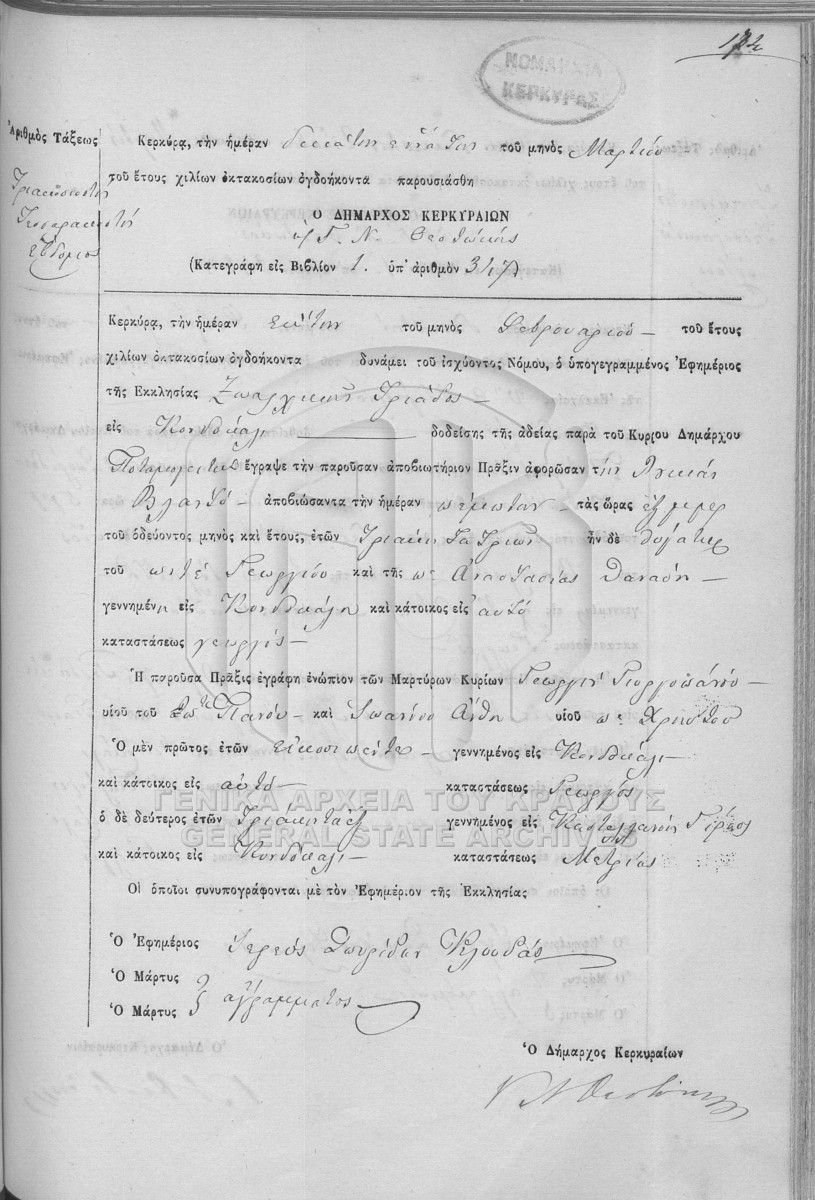 ΝΟΜΑΡΧΙΑ
ΚΕΡΚΥΡΑΣ
Ἀριθμὸς Τάξεως
Τριακοσιοστὴ
Τεσσαρακοστὴ
ἑβδόμη
Κερκύρᾳ, τὴν ἡμέραν δεκάτην ἐννάτην τοῦ μηνὸς Μαρτίου
τοῦ ἔτους χιλίων ὀκτακοσίων ὀγδοήκοντα παρουσιάσθη
Ο ΔΗΜΑΡΧΟΣ ΚΕΡΚΥΡΑΙΩΝ
Γ. Ν. Θεοτόκης
(Κατεγράφη εἰς Βιβλίον 1. ὑπ' ἀριθμὸν 347)
Κερκύρᾳ, τὴν ἡμέραν ἕκτην τοῦ μηνὸς Φεβρουαρίου τοῦ ἔτους
χιλίων ὀκτακοσίων ὀγδοήκοντα δυνάμει τοῦ ἰσχύοντος Νόμου, ὁ ὑπογεγραμμένος Ἐφημέριος
τῆς Ἐκκλησίας Ζωαρχικῆς Τριάδος
εἰς Κονδοκάλι δοθείσης τῆς ἀδείας παρὰ τοῦ Κυρίου Δημάρχου
Ποταμογειτων ἔγραψε τὴν παροῦσαν ἀποβιωτήριον Πρᾶξιν ἀφορῶσαν την
ἀποβιώσαντα τὴν ἡμέραν πέμπτην τὰς ὥρας ἓξ
τοῦ ὁδεύοντος μηνὸς καὶ ἔτους, ἐτῶν ἦν δὲ θυγάτηρ
τοῦ ποτέ Γεωργίου καὶ τῆς Ἀναστασίας
γεννημένη εἰς Κονδοκάλι καὶ κάτοικος εἰς αὐτό
καταστάσεως γεωργός
Ἡ παροῦσα Πρᾶξις ἐγράφη ἐνώπιον τῶν Μαρτύρων Κυρίων Γεωργίου
υἱοῦ του Πάνου καὶ Ἰωάννου υἱοῦ Χρήστου
Ὁ μὲν πρῶτος ἐτῶν εἰκοσιπέντε γεννημένος εἰς Κονδοκάλι
καὶ κάτοικος εἰς αὐτό καταστάσεως Γεωργός
ὁ δὲ δεύτερος ἐτῶν Τριάκηταεξ γεννημένος εἰς Καστελλανούς Γύρου
καὶ κάτοικος εἰς Κονδοκάλι καταστάσεως Μετρίας
Οἱ ὁποῖοι συνυπογράφονται μὲ τὸν Ἐφημέριον τῆς Ἐκκλησίας
Ὁ Ἐφημέριος Ἱερεύς Σπυρίδων Κλουδάς
Ὁ Μάρτυς
Ὁ Μάρτυς ἀγράμματος
Ὁ Δήμαρχος Κερκυραίων
Γ Ν Θεοτόκης
ΓΕΝΙΚΑ ΑΡΧΕΙΑ ΤΟΥ ΚΡΑΤΟΥΣ
GENERAL STATE ARCHIVES